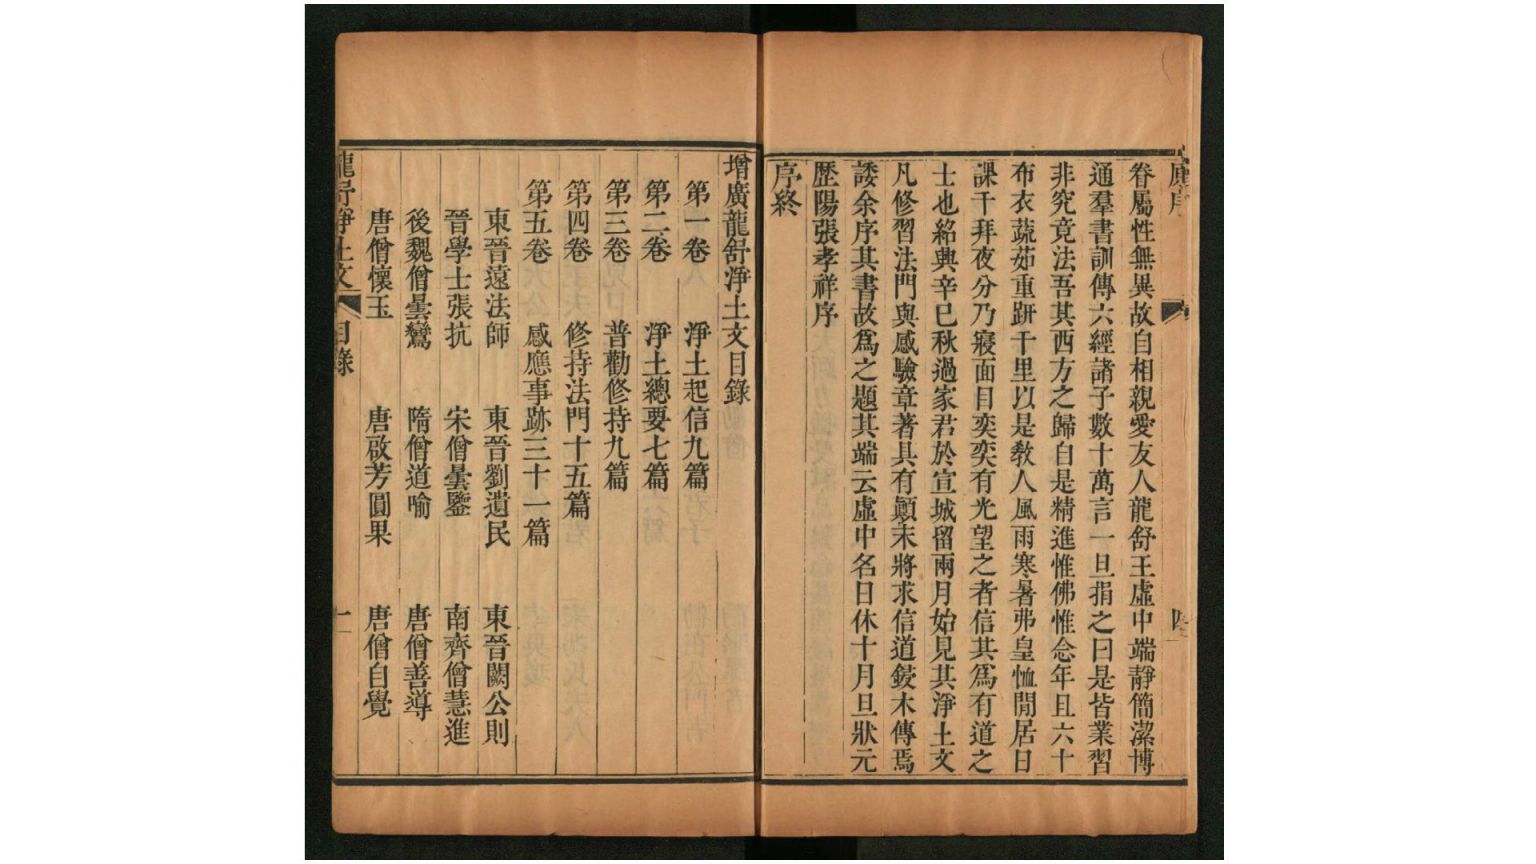 眷屬性無異故自相親愛友人龍舒王虛中端靜簡潔博
通羣書訓傳六經諸子數十萬言一旦捐之曰是皆業習
非究竟法吾其西方之歸自是精進惟佛惟念年且六十
布衣蔬茹重趼千里以是敎人風雨寒暑弗皇恤閒居日
課千拜夜分乃寢面目奕奕有光望之者信其爲有道之
士也紹興辛巳秋過家君於宣城留兩月始見其淨土文
凡修習法門與感驗章著具有顚末將求信道鋟木傳焉
諉余序其書故爲之題其端云虛中名日休十月旦狀元
歷陽張孝祥序
序終
增廣龍舒淨土文目錄
第一卷 淨土起信九篇
第二卷 淨土總要七篇
第三卷 普勸修持九篇
第四卷 修持法門十五篇
第五卷 感應事跡三十一篇
東晉遠法師 東晉劉遺民 東晉闕公則
晉學士張抗 宋僧曇鑒 南齊僧慧進
後魏僧曇鸞 隋僧道喻 唐僧善導
唐僧懷玉 唐啟芳圓果 唐僧自覺
龍舒淨土文 目錄 一